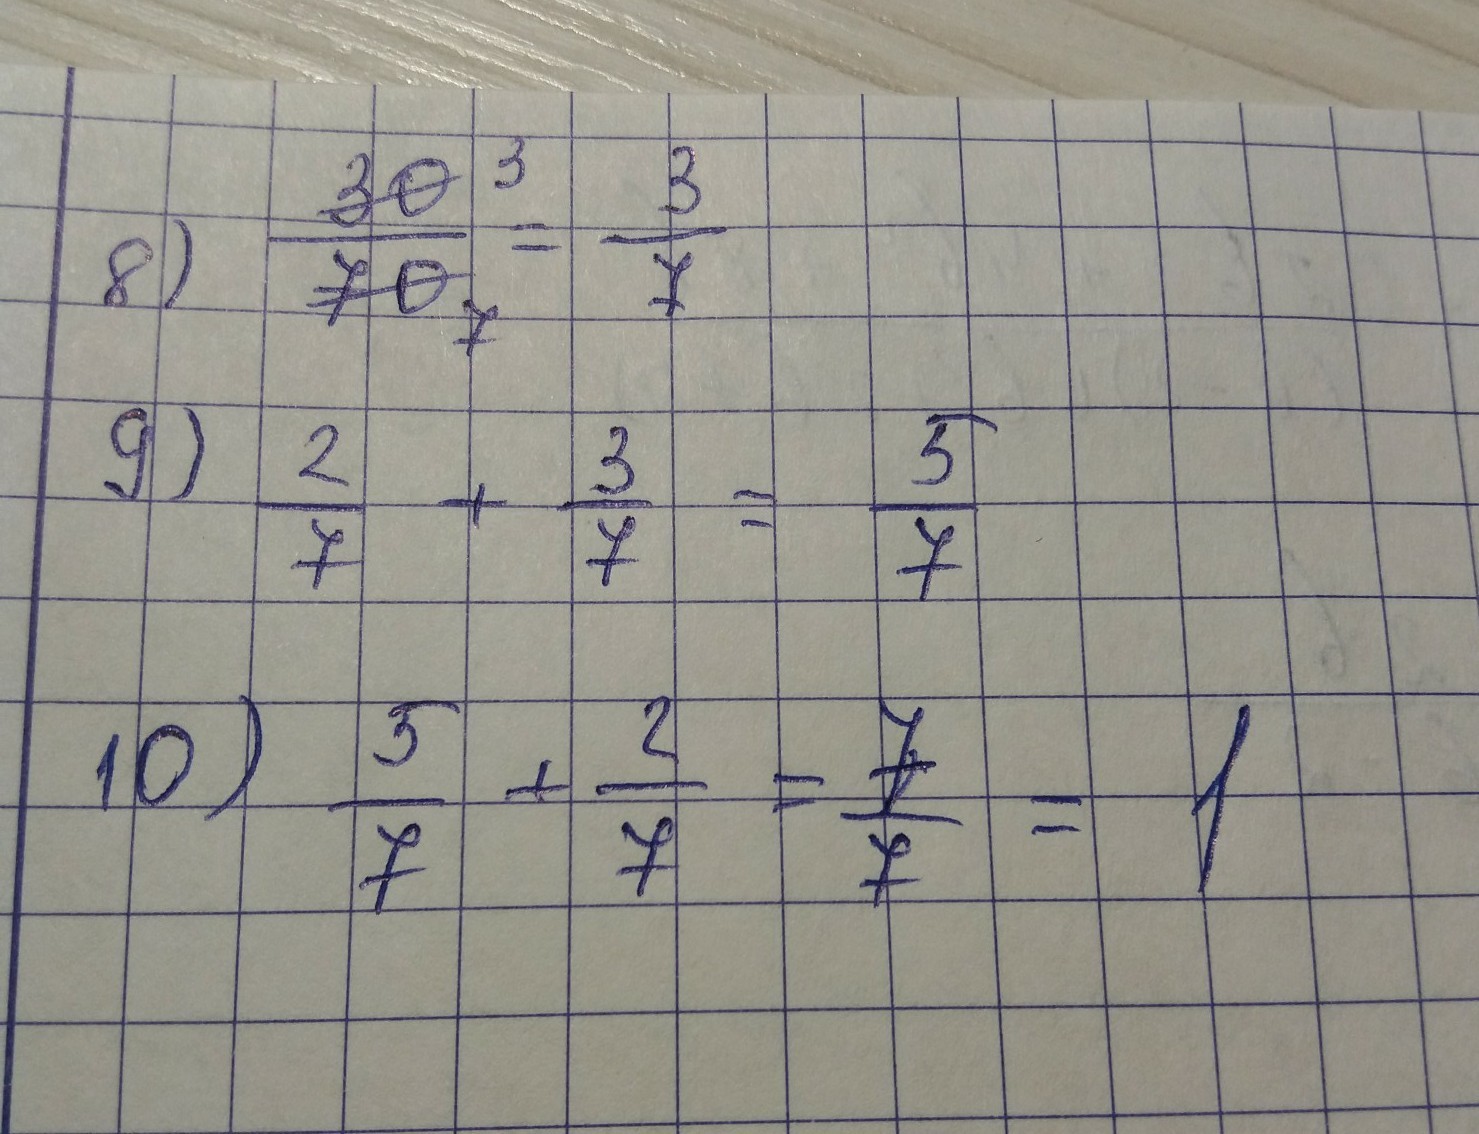 8) 30/70 3 7 = 3/7
9) 2/7 + 3/7 = 5/7
10) 5/7 + 2/7 = 7/7 = 1